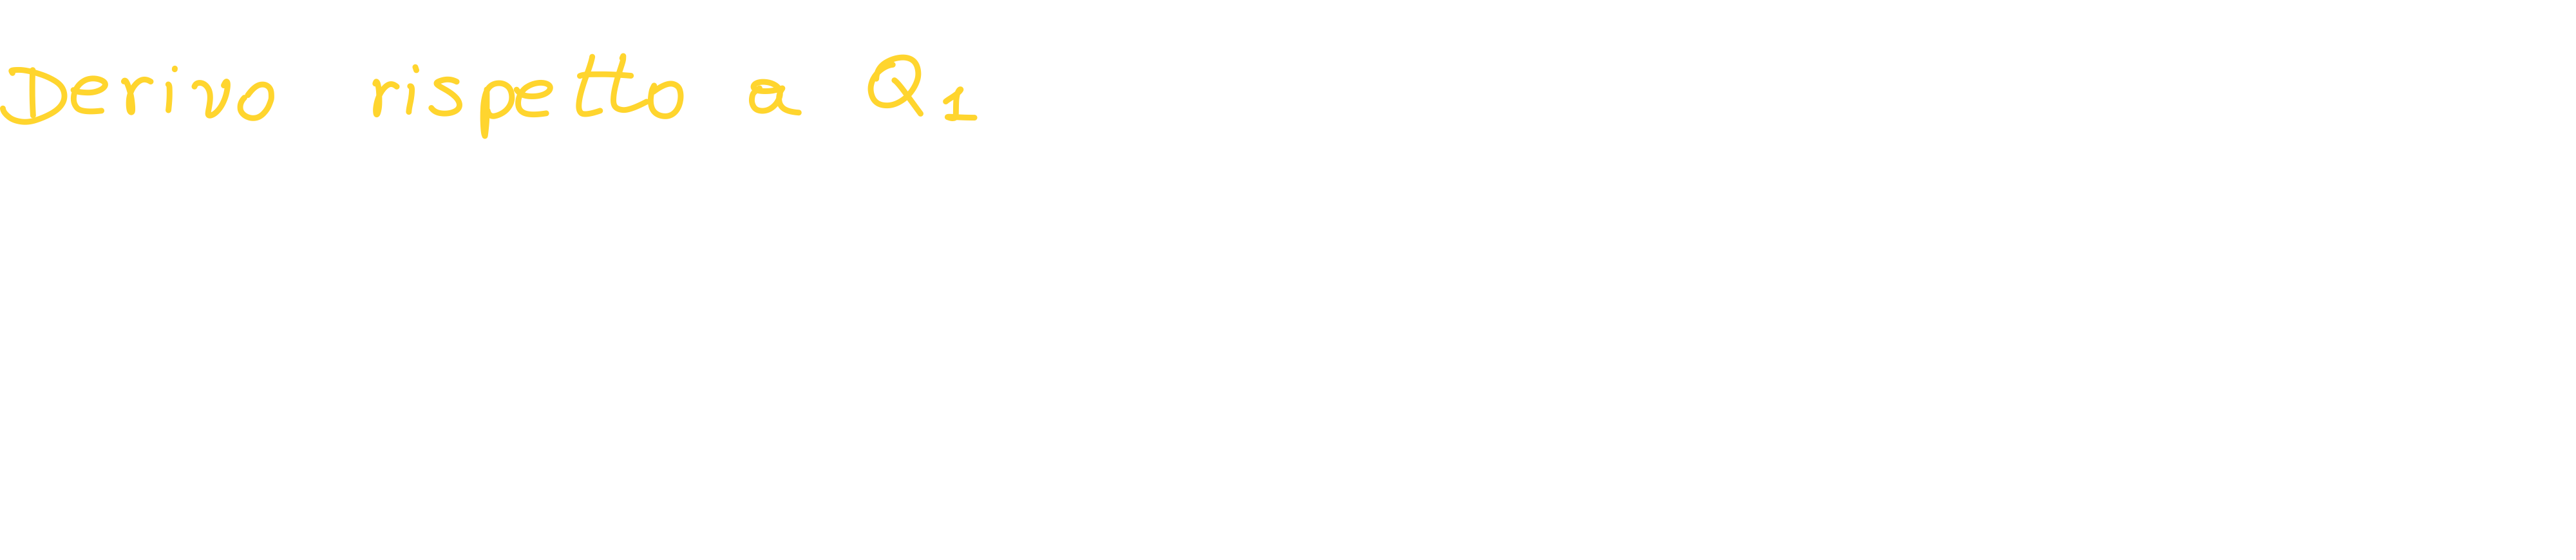 Derivo rispetto a Q1